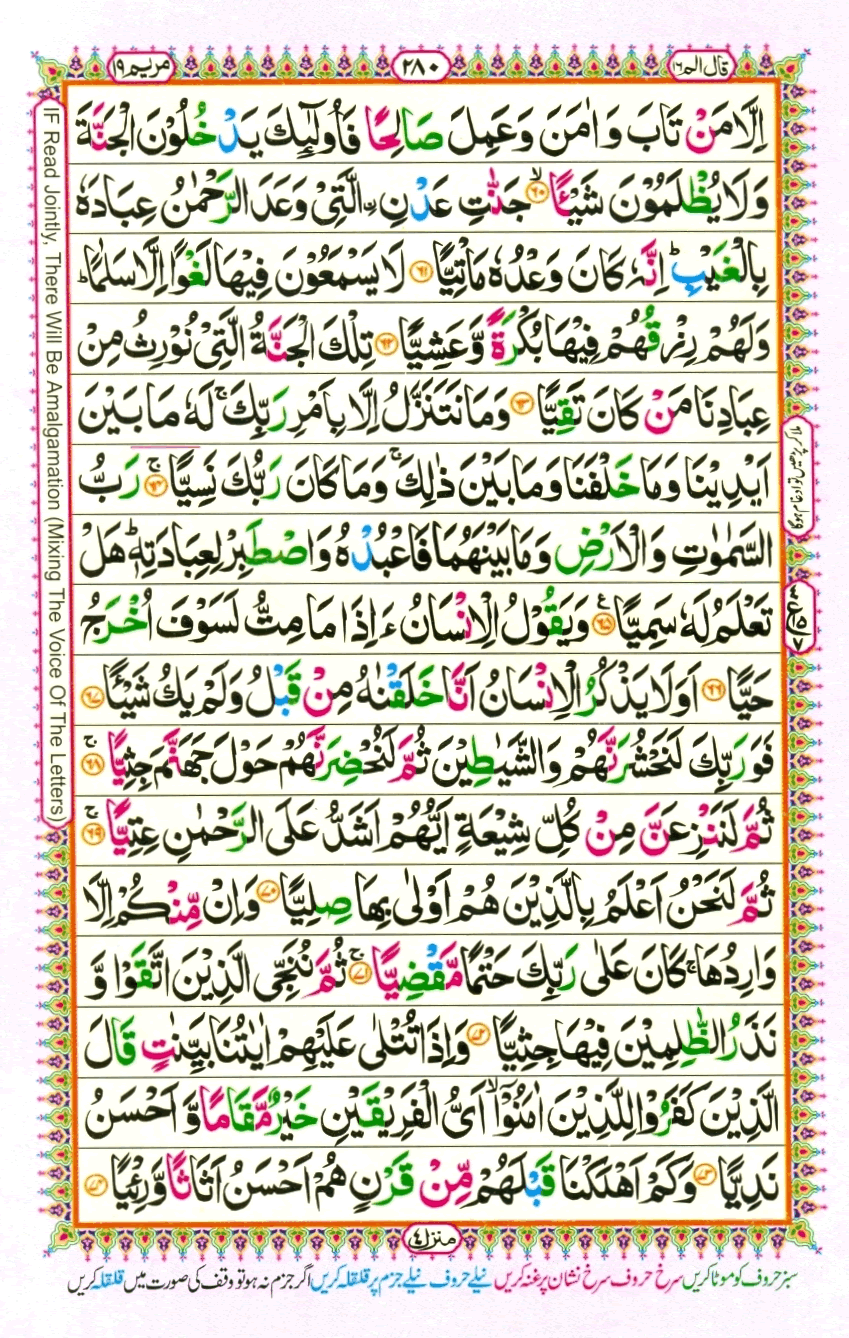 قال الم ١٦
٢٨٠
مريم ١٩
اِلَّا مَنْ تَابَ وَاٰمَنَ وَعَمِلَ صَالِحًا فَاُولٰٓئِكَ يَدْخُلُوْنَ الْجَنَّةَ
وَلَا يُظْلَمُوْنَ شَيْـًٔا ۙ‏﴿٦٠﴾ جَنّٰتِ عَدْنِ ۨالَّتِىْ وَعَدَ الرَّحْمٰنُ عِبَادَهٗ
بِالْغَيْبِ ؕ اِنَّهٗ كَانَ وَعْدُهٗ مَاْتِيًّا ﴿٦١﴾ لَا يَسْمَعُوْنَ فِيْهَا لَغْوًا اِلَّا سَلٰمًا ؕ
وَلَهُمْ رِزْقُهُمْ فِيْهَا بُكْرَةً وَّعَشِيًّا ﴿٦٢﴾ تِلْكَ الْجَنَّةُ الَّتِىْ نُوْرِثُ مِنْ
عِبَادِنَا مَنْ كَانَ تَقِيًّا ﴿٦٣﴾ وَمَا نَتَنَزَّلُ اِلَّا بِاَمْرِ رَبِّكَ ۚ لَهٗ مَا بَيْنَ
اَيْدِيْنَا وَمَا خَلْفَنَا وَمَا بَيْنَ ذٰلِكَ ۚ وَمَا كَانَ رَبُّكَ نَسِيًّا ۚ﴿٦٤﴾ رَبُّ
السَّمٰوٰتِ وَالْاَرْضِ وَمَا بَيْنَهُمَا فَاعْبُدْهُ وَاصْطَبِرْ لِعِبَادَتِهٖ ؕ هَلْ
تَعْلَمُ لَهٗ سَمِيًّا ﴿٦٥﴾ وَيَقُوْلُ الْاِنْسَانُ ءَاِذَا مَا مِتُّ لَسَوْفَ اُخْرَجُ
حَيًّا ﴿٦٦﴾ اَوَلَا يَذْكُرُ الْاِنْسَانُ اَنَّا خَلَقْنٰهُ مِنْ قَبْلُ وَلَمْ يَكُ شَيْـًٔا ﴿٦٧﴾
فَوَرَبِّكَ لَنَحْشُرَنَّهُمْ وَالشَّيٰطِيْنَ ثُمَّ لَنُحْضِرَنَّهُمْ حَوْلَ جَهَنَّمَ جِثِيًّا ۚ﴿٦٨﴾
ثُمَّ لَنَنْزِعَنَّ مِنْ كُلِّ شِيْعَةٍ اَيُّهُمْ اَشَدُّ عَلَى الرَّحْمٰنِ عِتِيًّا ۚ﴿٦٩﴾
ثُمَّ لَنَحْنُ اَعْلَمُ بِالَّذِيْنَ هُمْ اَوْلٰى بِهَا صِلِيًّا ﴿٧٠﴾ وَاِنْ مِّنْكُمْ اِلَّا
وَارِدُهَا ۚ كَانَ عَلٰى رَبِّكَ حَتْمًا مَّقْضِيًّا ۚ﴿٧١﴾ ثُمَّ نُنَجِّى الَّذِيْنَ اتَّقَوْا وَّ
نَذَرُ الظّٰلِمِيْنَ فِيْهَا جِثِيًّا ﴿٧٢﴾ وَاِذَا تُتْلٰى عَلَيْهِمْ اٰيٰتُنَا بَيِّنٰتٍ قَالَ
الَّذِيْنَ كَفَرُوْا لِلَّذِيْنَ اٰمَنُوْۤا ۙ اَىُّ الْفَرِيْقَيْنِ خَيْرٌ مَّقَامًا وَّاَحْسَنُ
نَدِيًّا ﴿٧٣﴾ وَكَمْ اَهْلَكْنَا قَبْلَهُمْ مِّنْ قَرْنٍ هُمْ اَحْسَنُ اَثَاثًا وَّرِءْيًا ﴿٧٤﴾
منزل ٤
سبز حروف کو موٹا کریں سرخ حروف سرخ نشان پر غنہ کریں نیلے حروف نیلے جزم پر قلقلہ کریں اگر جزم نہ ہو تو وقف کی صورت میں قلقلہ کریں
IF Read Jointly, There Will Be Amalgamation (Mixing The Voice Of The Letters)
ملا کر پڑھیں تو ادغام ہوگا